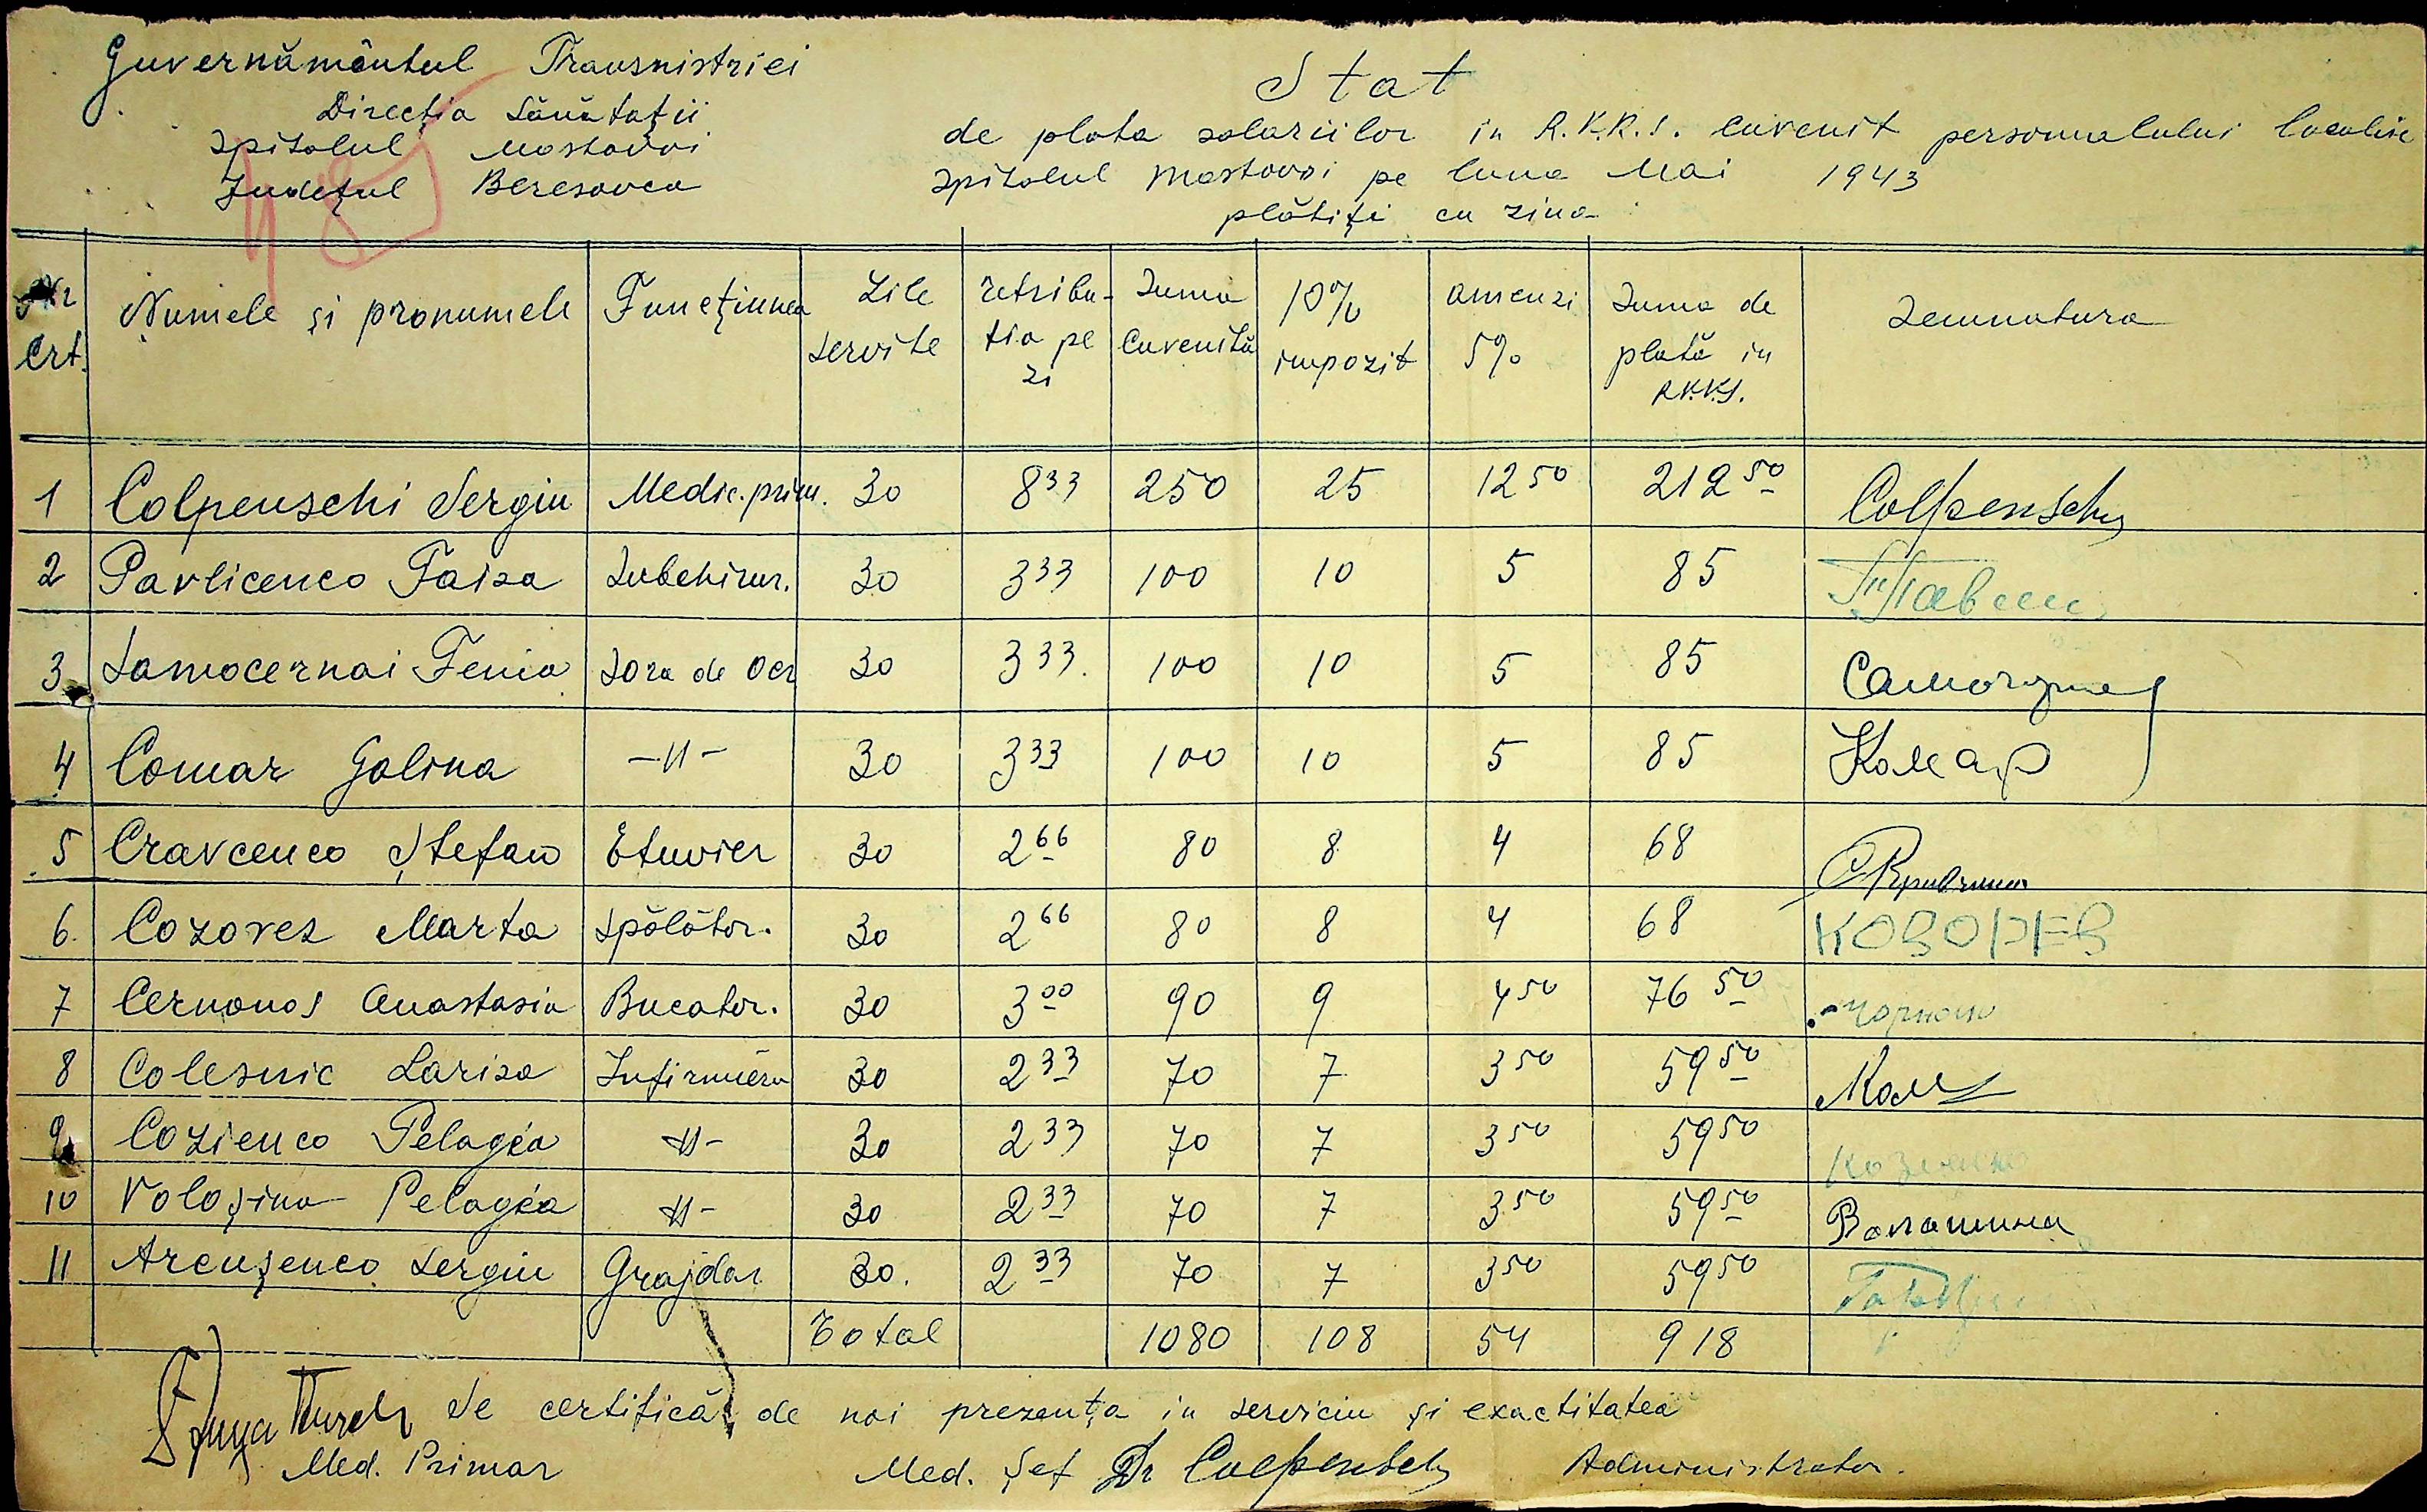 Guvernământul Transnistriei
Direcția Sănătații
Spitalul Mostovoi
Județul Beresovca
Stat
de plata salariilor in R.K.K.S. Cuvenit personalului localnic
Spitalul Mostovoi pe luna Mai 1943
plătiți cu ziua
Nr Crt. Numele și pronumele Funcțiunea Zile servite retribuția pe zi Suma Cuvenită 10% impozit amenzi 5% Suma de plată in R.K.K.S. Semnatura
1 Colpenschi Sergiu Medic.prim. 30 8 33 250 25 12 50 212 50 Colpensch
2 Pavlicenco Taisa Subchirur. 30 3 33 100 10 5 85
3 Samocernai Fenia Sora de Ocr 30 3 33. 100 10 5 85
4 Comar Galina —"— 30 3 33 100 10 5 85 Комар
5 Cravcenco Ștefan Etuvier 30 2 66 80 8 4 68
6. Cozorez Marta Spălător. 30 2 66 80 8 4 68 КОЗОРЕЗ
7 Cernonos Anastasia Bucator. 30 3 00 90 9 4 50 76 50
8 Colesnic Larisa Infirmiera 30 2 33 70 7 3 50 59 50
9 Cozienco Pelagéa —"— 30 2 33 70 7 3 50 59 50
10 Voloșina Pelagéa —"— 30 2 33 70 7 3 50 59 50 Волошина
11 Arcușenco Sergiu Grajdar 30. 2 33 70 7 3 50 59 50
Total 1080 108 54 918
Se certifică de noi prezența in serviciu și exactitatea
Med. Primar Med. Șef Dr Colpensch Administrator.